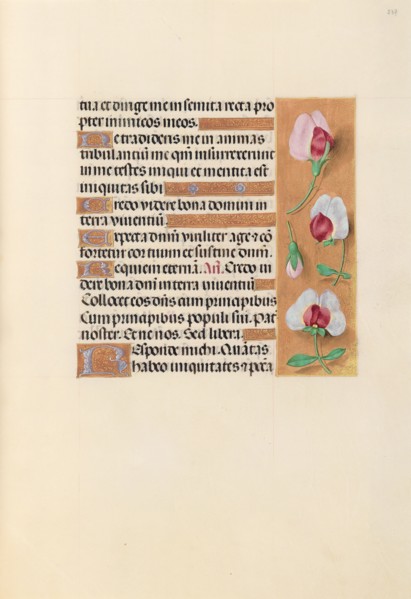 tua et dirige me in semita recta pro
pter inimicos meos.
Ne tradideris me in animas
tribulantiũ me qm̃ insurrexerunt
in me testes iniqui et mentita est
iniquitas sibi
Credo videre bona domini in
terra viventiũ
Expecta dñm viriliter age ⁊ cõ
fortetur cor tuum et sustine dñm.
Requiem eternã. Añ. Credo vi
dere bona dñi in terra viventiũ
Collocet eos dñs cum principibus
Cum principibus populi sui. Pat̃
noster. Et ne nos. Sed libera
Responde michi. Quãtas
habeo iniquitates ⁊ pcc̃a